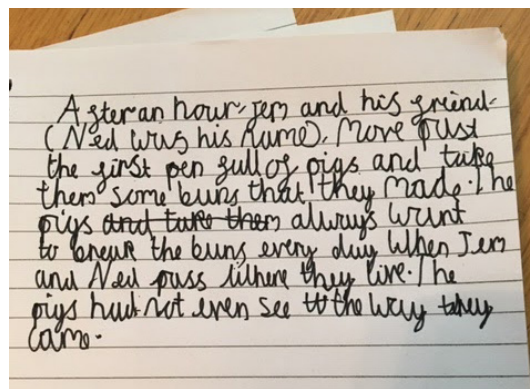 After an hour, Jem and his friend
(Ned was his name), move past
the first pen full of pigs and take
them some buns that they made. The
pigs and take them always want
to break the buns every day when Jem
and Ned pass where they live. The
pigs had not even see to the way they
came.